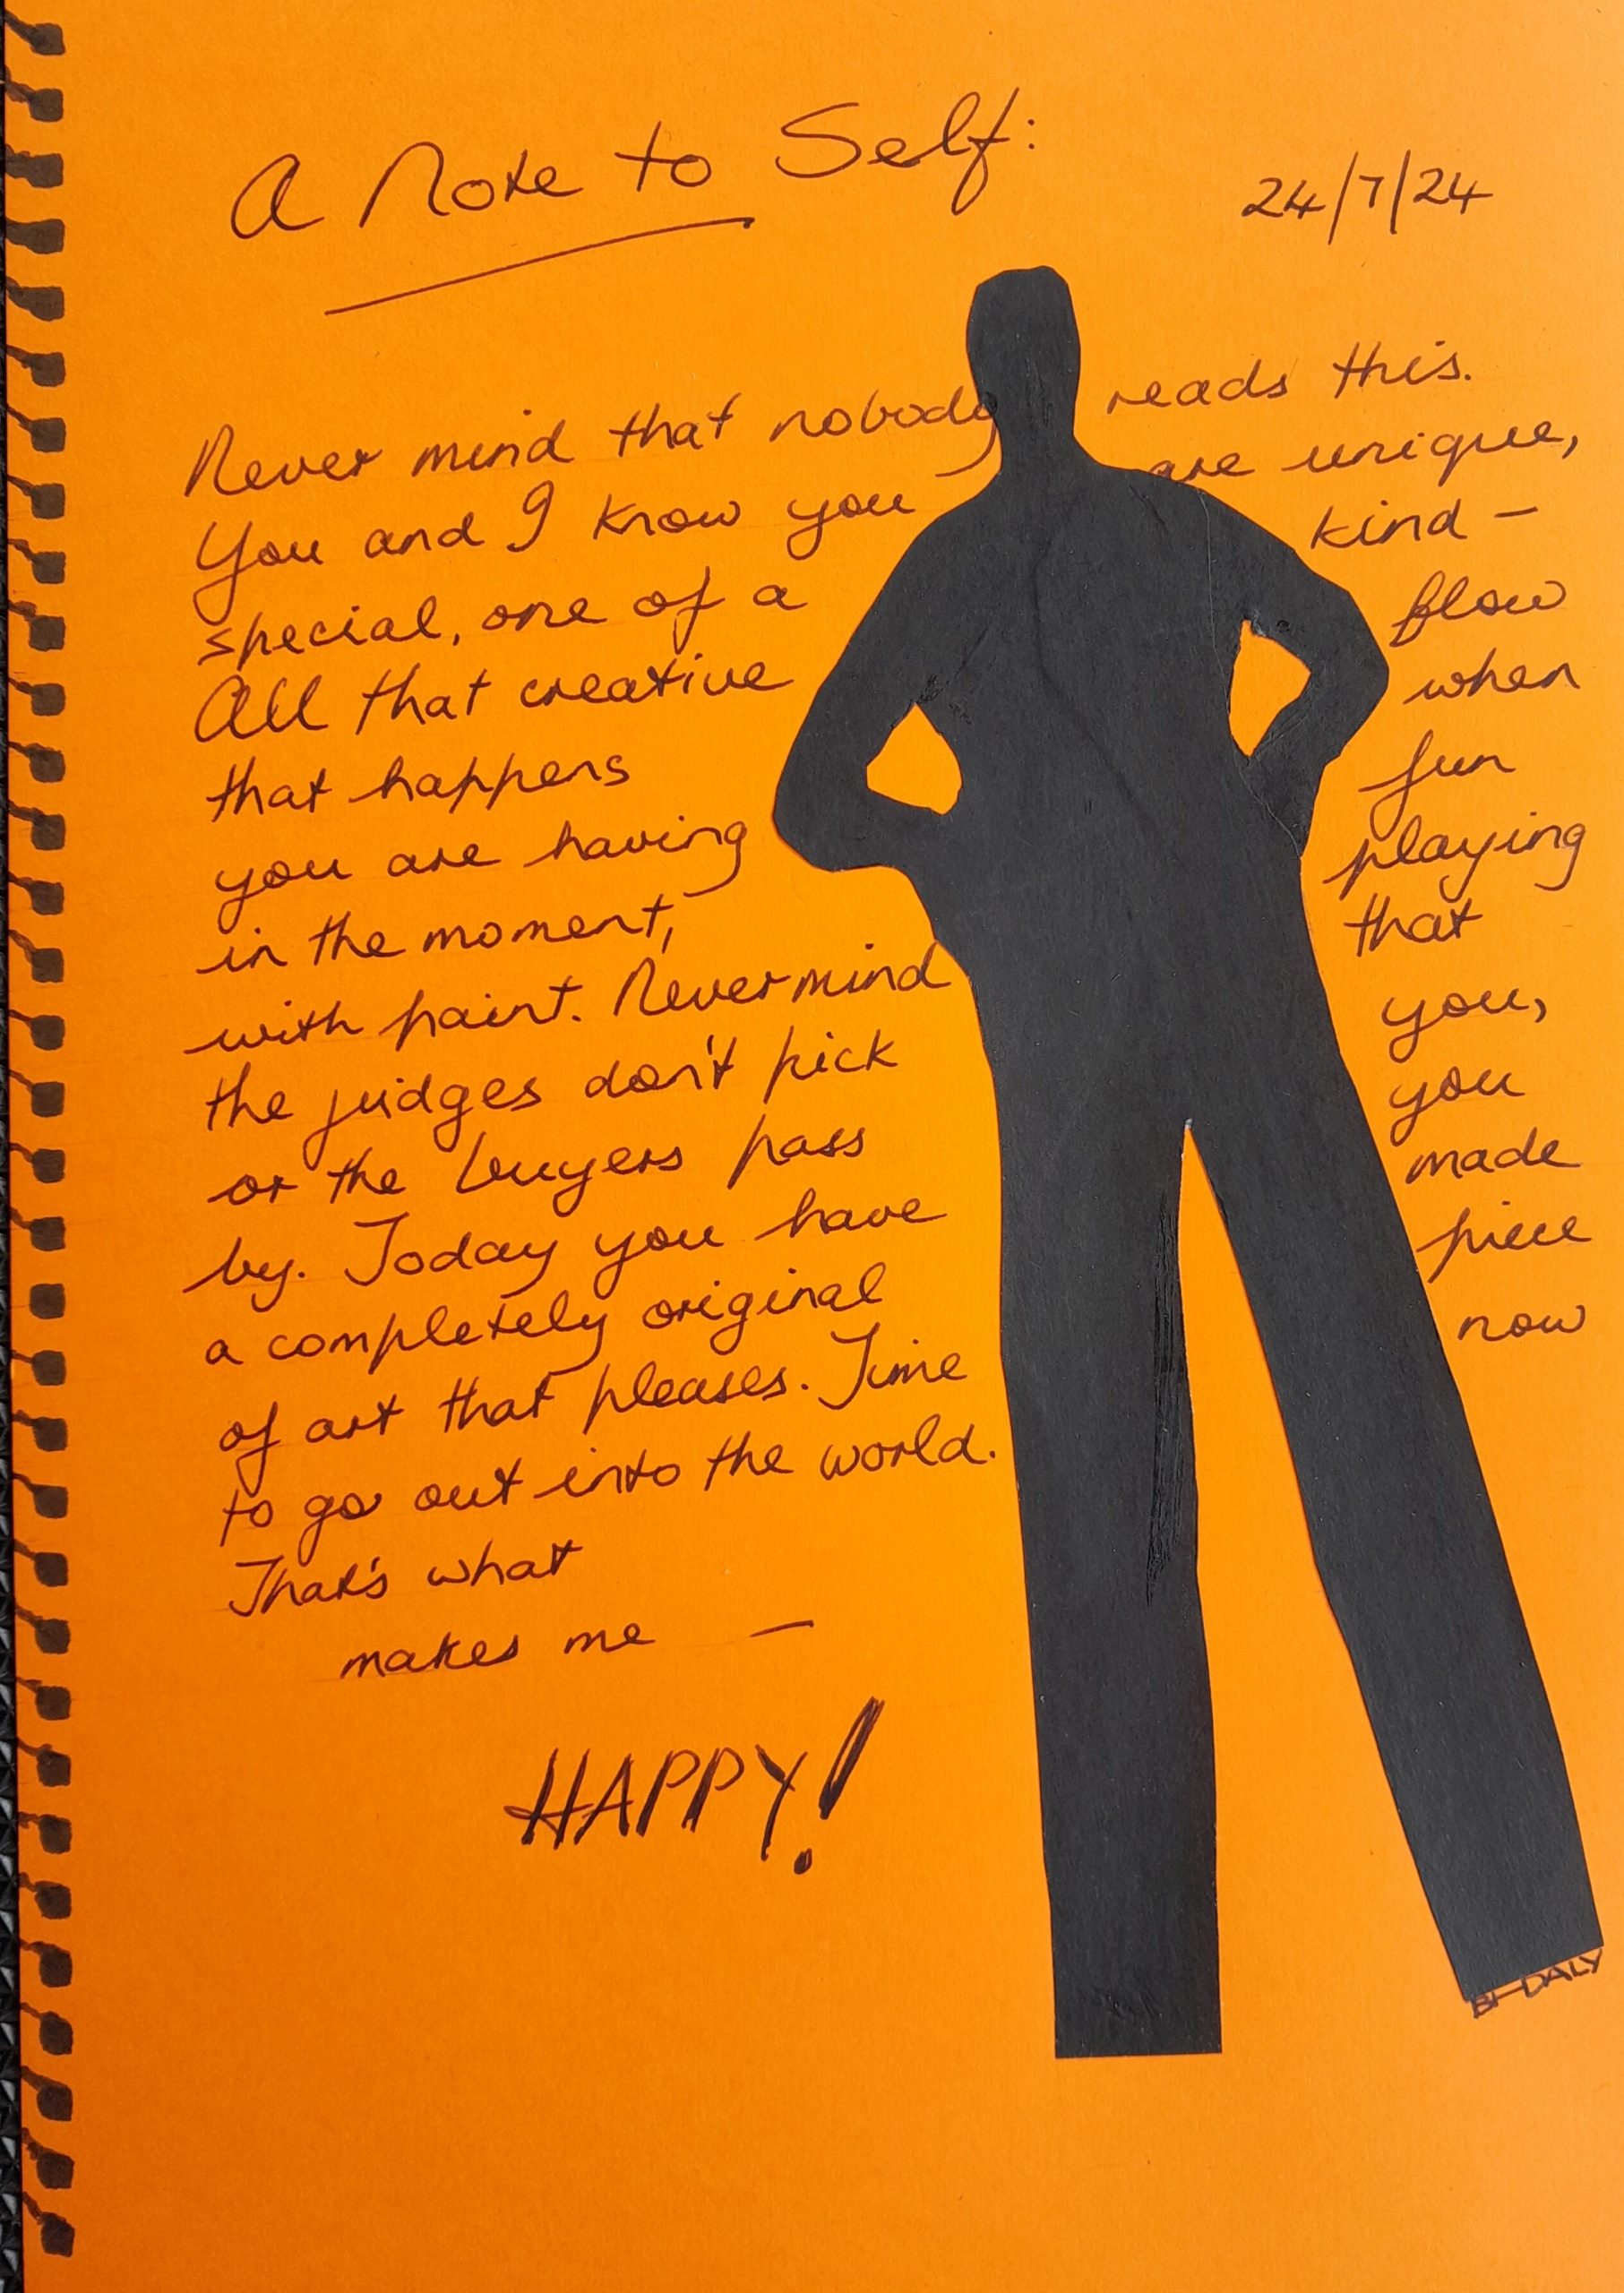 A Note to Self:
24/7/24
Never mind that nobody reads this.
You and I know you are unique,
special, one of a kind –
All that creative flow
that happens when
you are having fun
in the moment, playing
with paint. Nevermind that
the judges don't pick you,
or the buyers pass you
by. Today you have made
a completely original piece
of art that pleases. Time now
to go out into the world.
That's what
makes me –
HAPPY!
DALY